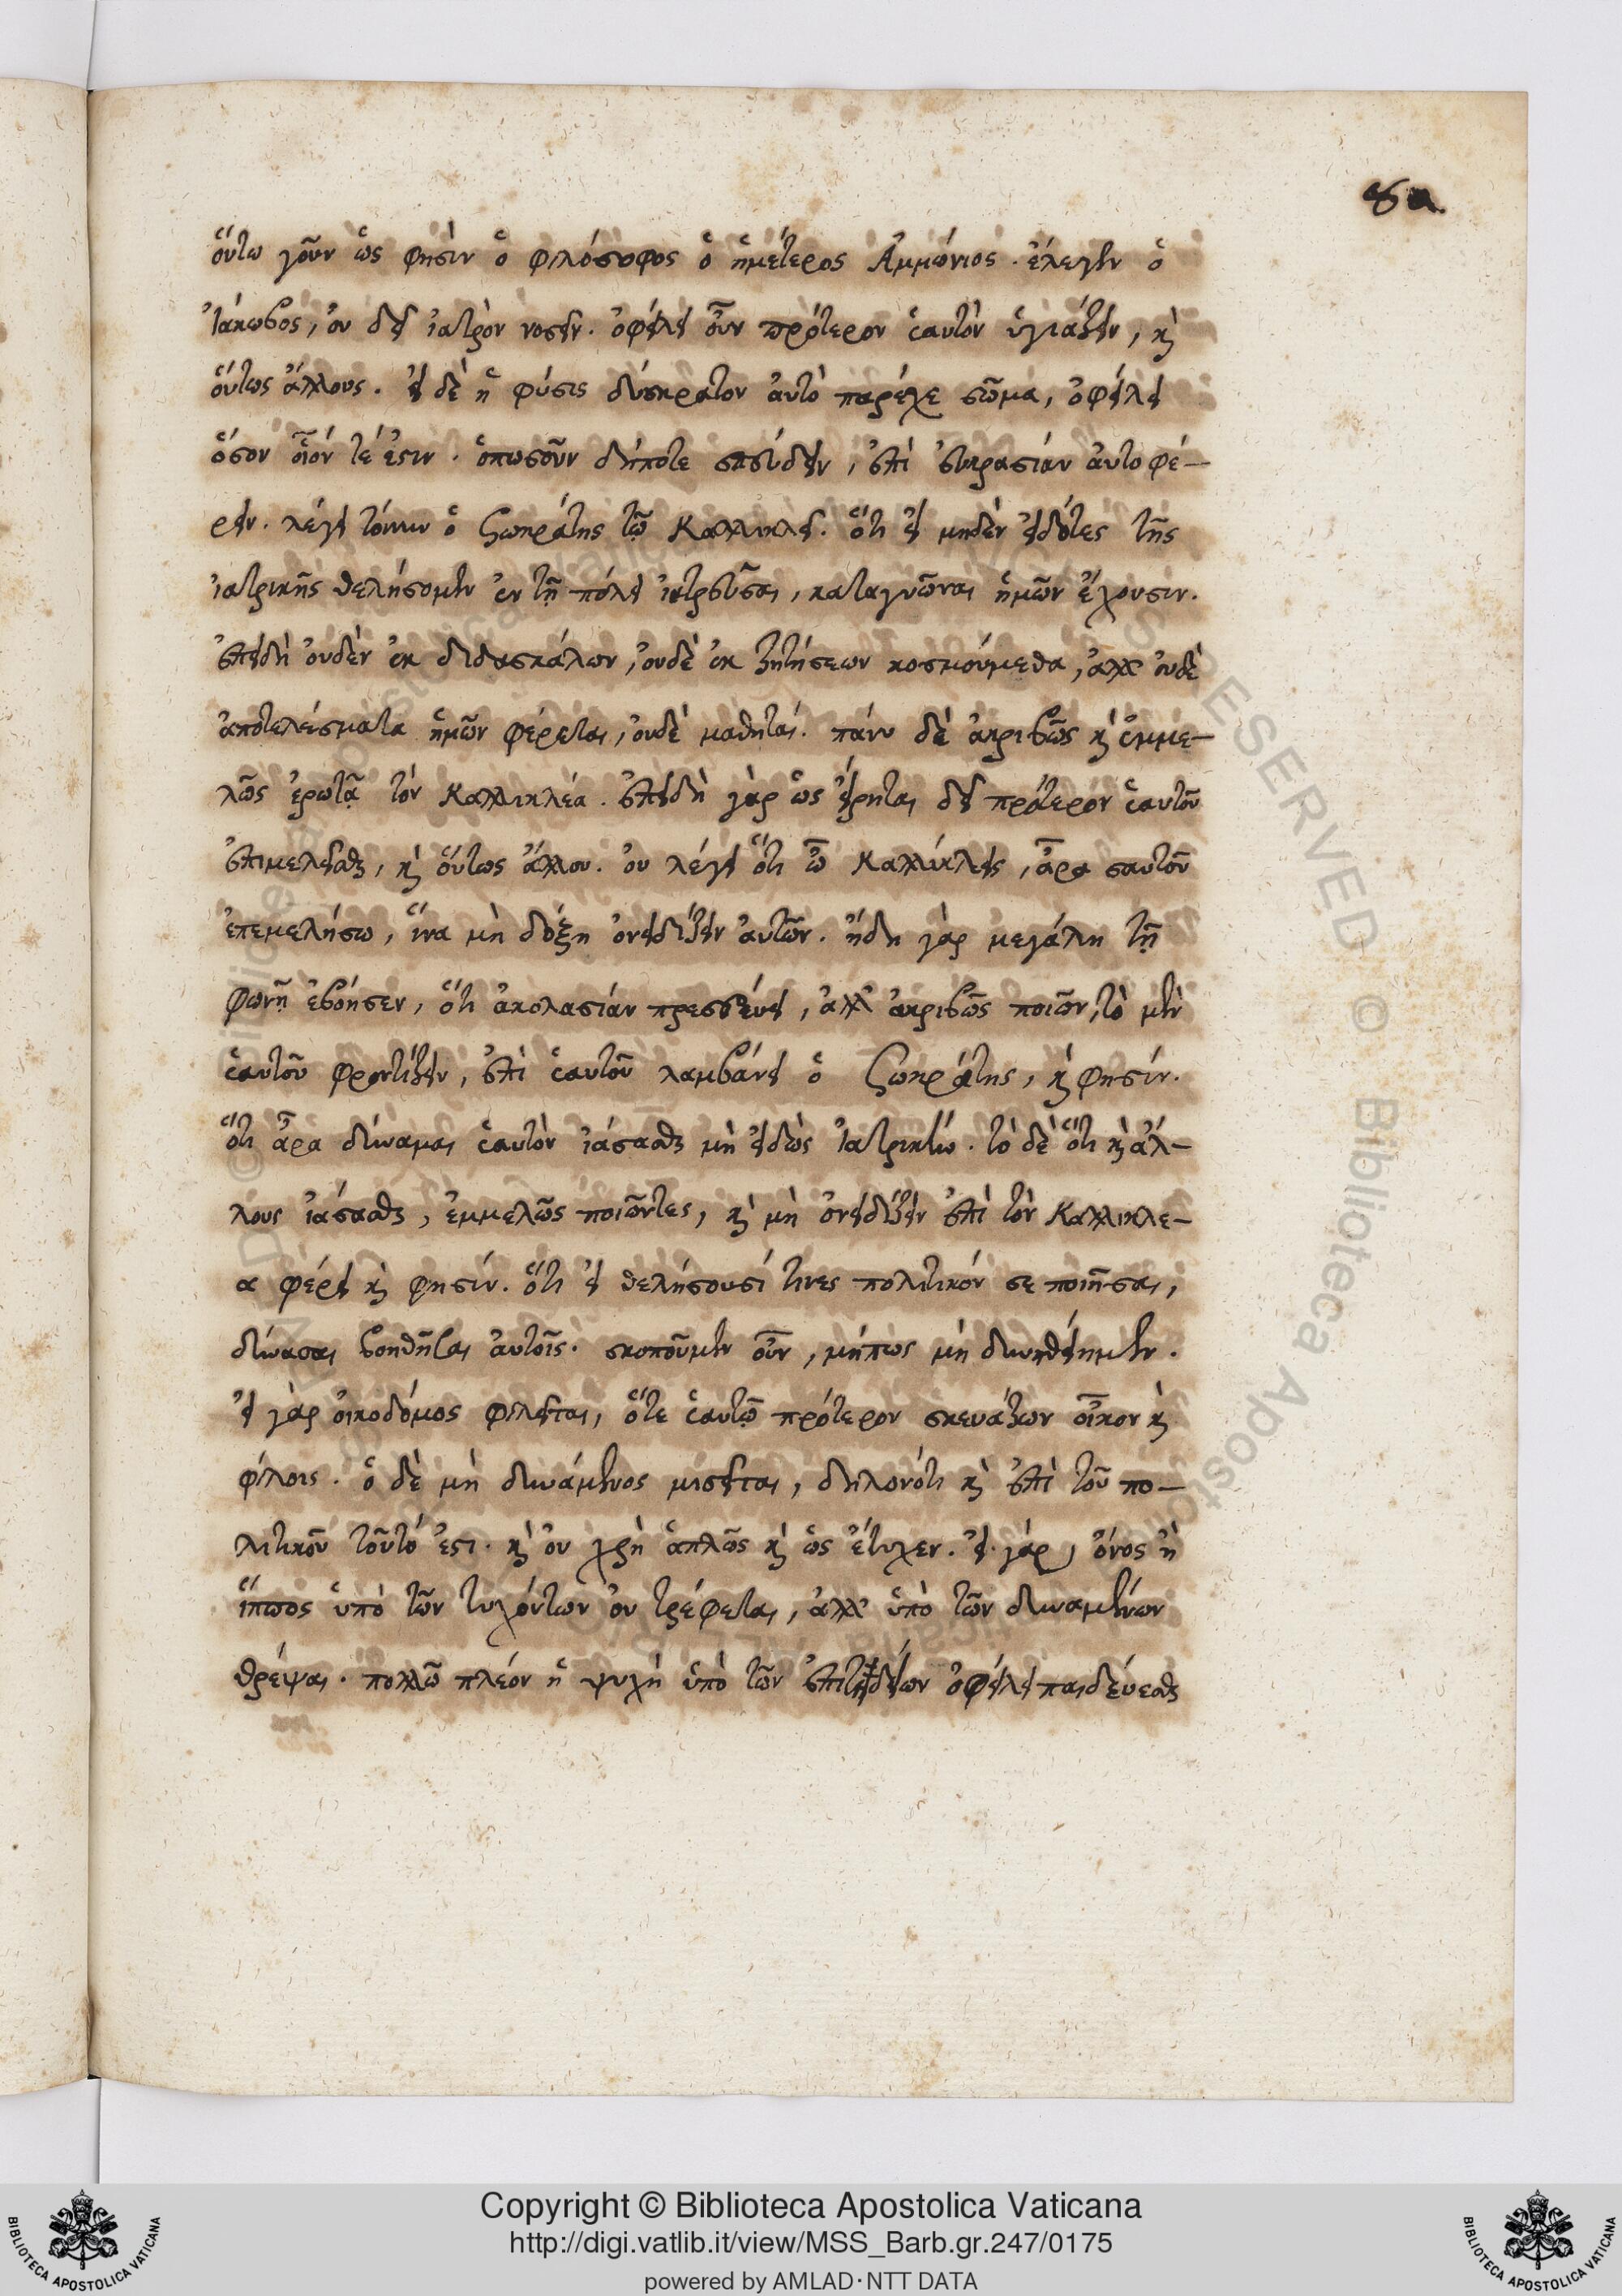 οὕτω γοῦν ὥς φησιν ὁ φιλόσοφος ὁ ἡμέτερος Ἀμμώνιος. ἔλεγεν ὁ
Ἰάκωβος, οὐ δεῖ ἰατρὸν νοσεῖν. ὀφείλει οὖν πρότερον ἑαυτὸν ὑγιάζειν, κὶ
οὕτως ἄλλους. εἰ δὲ ἡ φύσις δύσκρατον αὐτὸ παρέχε σῶμα, ὀφείλει
ὅσον οἷόν τέ ἐστιν. ὁπωσοῦν δήποτε σπεύδειν, ἐπὶ εὐκρασίαν αὐτο φέ-
ρειν. λέγει τοίνυν ὁ Σωκράτης τῷ Καλλικλεῖ. ὅτι εἰ μηδὲν εἰδότες τῆς
ἰατρικῆς θελήσομεν ἐν τῇ πόλει ἰατρεῦσαι, καταγνῶναι ἡμῶν ἔχουσιν.
ἐπειδὴ οὐδὲν ἐκ διδασκάλων, οὐδὲ ἐκ ζητήσεων κοσμούμεθα, ἀλλ' οὐδὲ
ἀποτελέσματα ἡμῶν φέρεται, οὐδὲ μαθηταί. πάνυ δὲ ἀκριβῶς κὶ ἐμμε-
λῶς ἐρωτᾷ τὸν Καλλικλέα. ἐπειδὴ γὰρ ὡς εἴρηται δεῖ πρότερον ἑαυτοῦ
ἐπιμελεῖσθαι, κὶ οὕτως ἄλλου. οὐ λέγει ὅτι ὦ Καλλίκλεις, ἆρα σαυτοῦ
ἐπεμελήσω, ἵνα μὴ δόξη ὀνειδίζειν αὐτῶν. ἤδη γὰρ μεγάλη τῇ
φωνῇ ἐβόησεν, ὅτι ἀκολασίαν πρεσβεύει, ἀλλ' ἀκριβῶς ποιῶν, τὸ μὲν
ἑαυτοῦ φροντίζειν, ἐπὶ ἑαυτοῦ λαμβάνει ὁ Σωκράτης, κὶ φησίν.
ὅτι ἆρα δύναμαι ἑαυτὸν ἰάσασθαι μὴ εἰδὼς ἰατρικήν. τὸ δὲ ὅτι κὶ ἄλ-
λους ἰάσασθαι, ἐμμελῶς ποιῶντες, κὶ μὴ ὀνειδίζειν ἐπὶ τὸν Καλλικλε-
α φέρει κὶ φησίν. ὅτι εἰ θελήσουσί τινες πολιτικόν σε ποιῆσαι,
δύνασαι βοηθῆσαι αὐτοῖς. σκοποῦμεν οὖν, μήπως μὴ δυνηθείημεν.
εἰ γὰρ οἰκοδόμος φιλεῖται, ὅτε ἑαυτῷ πρότερον σκευάζων οἶκον κὶ
φίλοις. ὁ δὲ μὴ δυνάμενος μισεῖται, δηλονότι κὶ ἐπὶ τοῦ πο-
λιτικοῦ τοῦτό ἐστι. κὶ οὐ χρὴ ἁπλῶς κὶ ὡς ἔτυχεν. εἰ γὰρ, ὄνος ἢ
ἵππος ὑπὸ τῶν τυχόντων οὐ τρέφεται, ἀλλ' ὑπὸ τῶν δυναμένων
θρέψαι. πολλῶ πλέον ἡ ψυχὴ ὑπὸ τῶν ἐπιτηδείων ὀφείλει παιδεύεσθαι
Copyright © Biblioteca Apostolica Vaticana
http://digi.vatlib.it/view/MSS_Barb.gr.247/0175
powered by AMLAD·NTT DATA